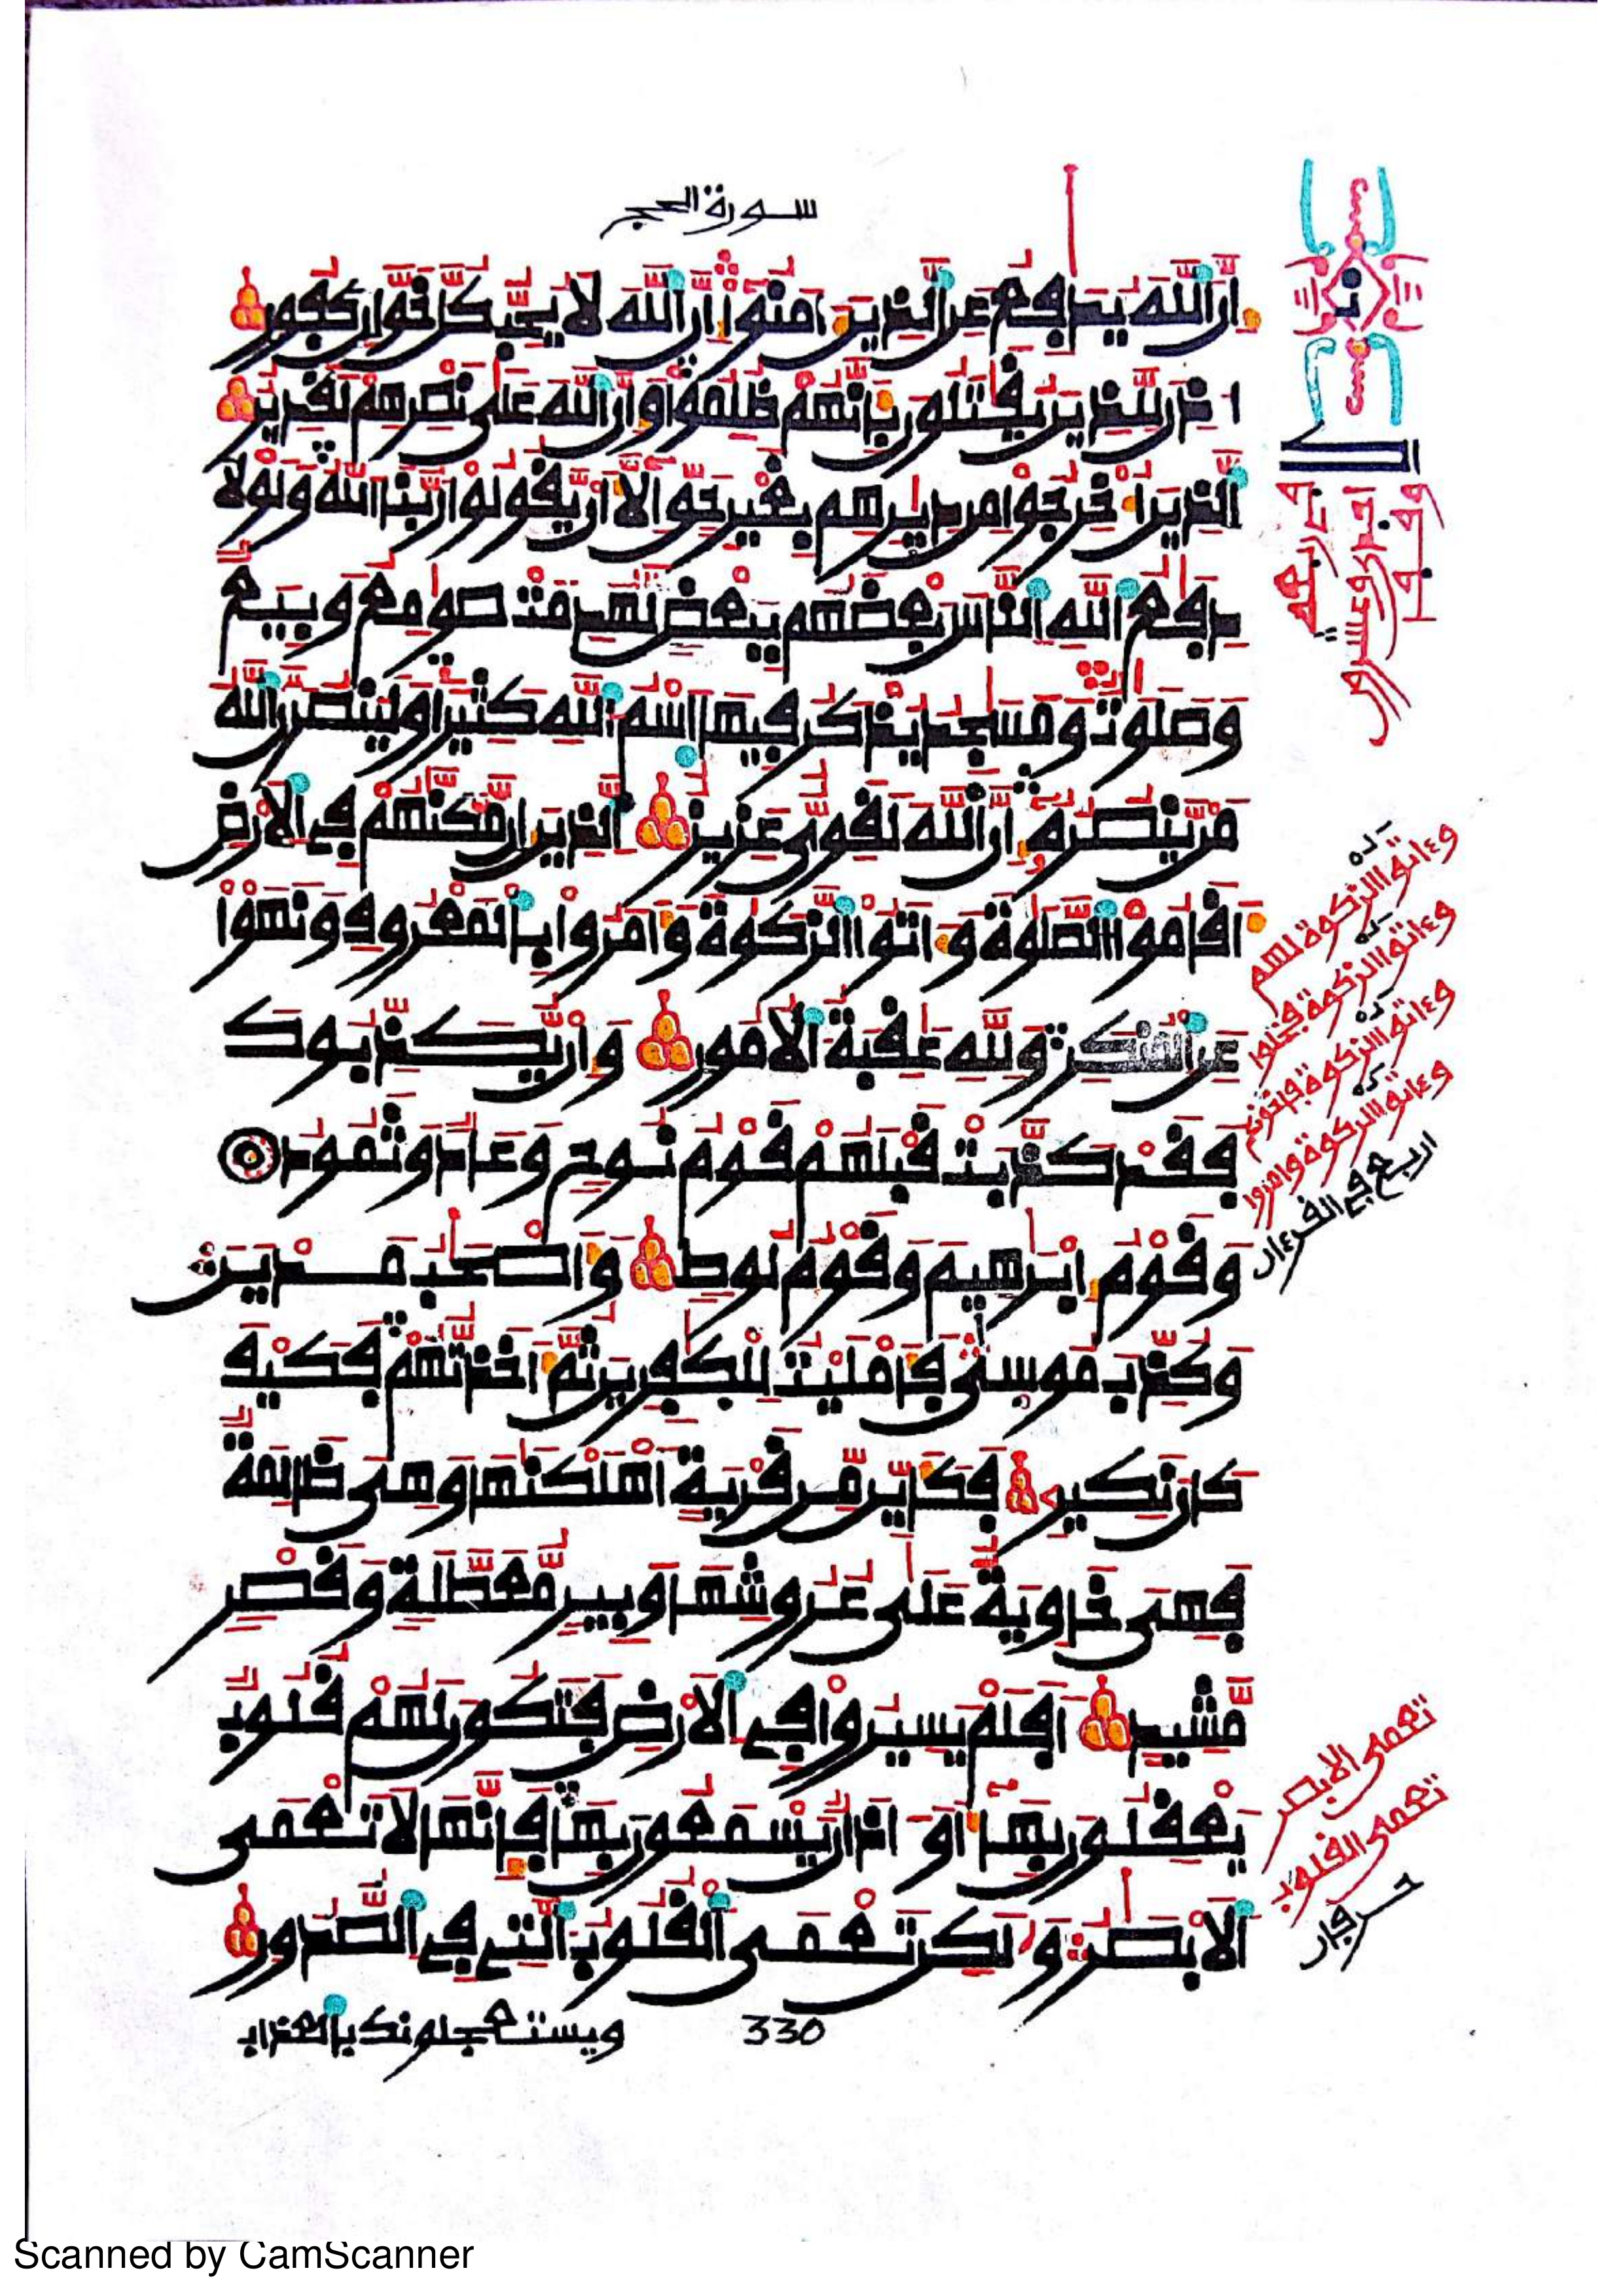 سورة الحج
إن الله يدافع عن الذين ءامنوا إن الله لا يحب كل خوان كفور
أذن للذين يقتلون بأنهم ظلموا وإن الله على نصرهم لقدير
الذين أخرجوا من ديرهم بغير حق إلا أن يقولوا ربنا الله ولولا
دفع الله الناس بعضهم ببعض لهدمت صومع وبيع
وصلوت ومسجد يذكر فيها اسم الله كثيرا ولينصرن الله
من ينصره إن الله لقوي عزيز الذين إن مكنهم في الأرض
أقاموا الصلوة وءاتوا الزكوة وأمروا بالمعروف ونهوا
عن المنكر ولله عقبة الأمور وإن يكذبوك
فقد كذبت قبلهم قوم نوح وعاد وثمود
وقوم إبرهيم وقوم لوط وأصحب مدين
وكذب موسى فأمليت للكفرين ثم أخذتهم فكيف
كان نكير فكأين من قرية أهلكنها وهي ظالمة
فهي خاوية على عروشها وبير معطلة وقصر
مشيد أفلم يسيروا في الأرض فتكون لهم قلوب
يعقلون بها أو ءاذان يسمعون بها فإنها لا تعمى
الأبصر ولكن تعمى القلوب التي في الصدور
330
ويستعجلونك بالعذاب
وءاتوا الزكوة لهم
وءاتوا الزكوة فخلوا
وءاتوا الزكوة فإخونكم
وءاتوا الزكوة وأمروا
اربع في القرءان
تعمى الابصر
تعمى القلوب
حرفان
Scanned by CamScanner